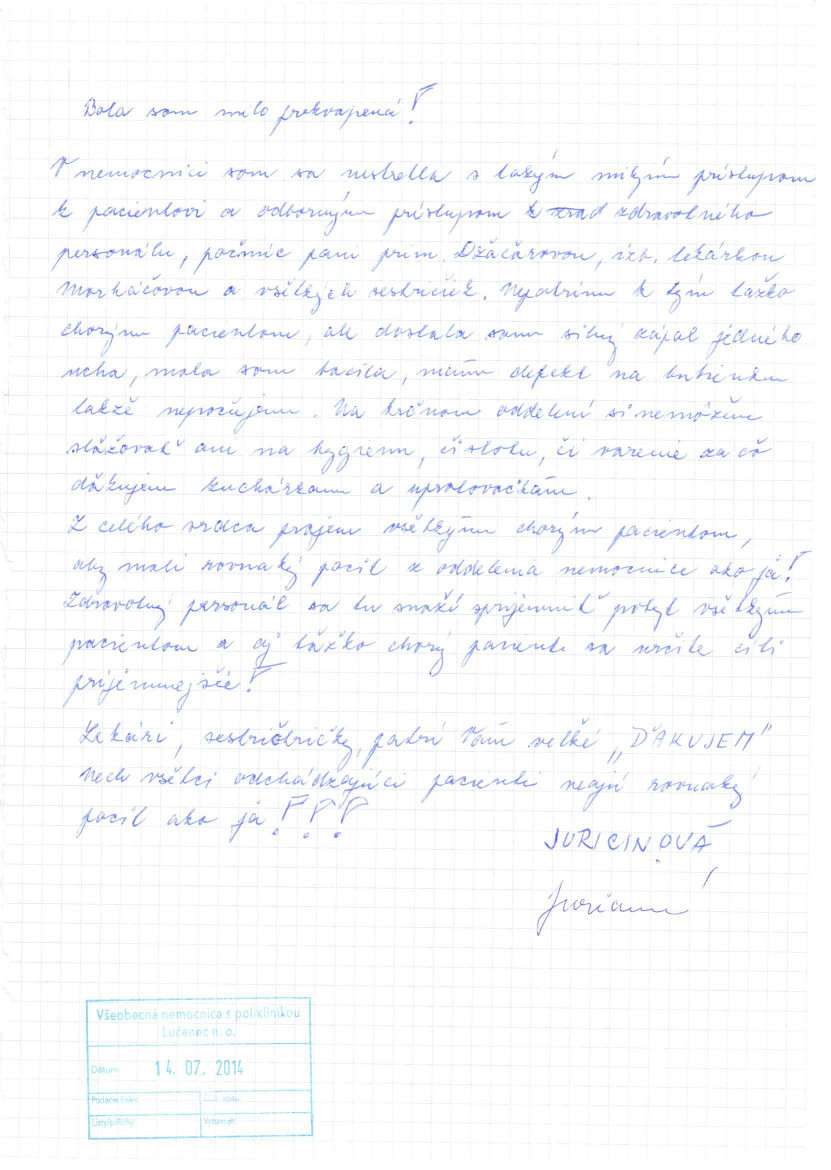 Bola som milo prekvapená!
V nemocnici som sa nestretla s takým milým prístupom
k pacientovi a odborným prístupom k zdravotného
personálu, počnúc pani prim. Džačárovou, izb. lekárkou
Morháčovou a všetkých sestričiek. Nepatrím k tým ťažko
chorým pacientom, ale dostala som silný zápal jedného
ucha, mala som bacila, mám defekt na bubienku
takže nepočujem. Na krčnom oddelení si nemôžem
sťažovať ani na hygienu, čistotu, či varenie za čo
ďakujem kuchárkam a upratovačkám.
Z celého srdca prajem všetkým chorým pacientom,
aby mali rovnaký pocit z oddelenia nemocnice ako já!
Zdravotný personál sa tu snaží spríjemniť pobyt všetkým
pacientom a aj ťažko chorý pacienti sa určite cíti
príjemnejšie!
Lekári, patrí Vám veľké „ĎAKUJEM"
Nech všetci odchádzajúci pacienti majú rovnaký
pocit ako já!!!
JURICINOVÁ
Všeobecná nemocnica s poliklinikou
Lučenec n. o.
Dátum: 14. 07. 2014
Podacie číslo:
Listy/prílohy:
Vybavuje: